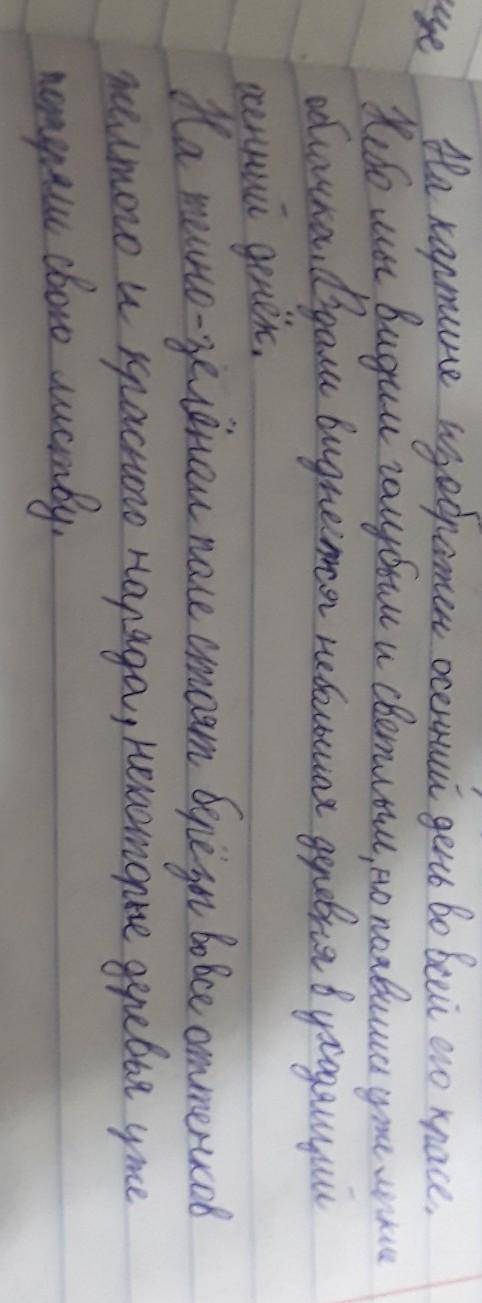 На картине изображен осенний день во всей его красе.
Небо мы видим голубым и светлым, но появились уже легкие
облачка. Вдали виднеется небольшая деревня в уходящий
осенний денёк.
На темно-зелёном поле стоят берёзы во все оттенков
желтого и красного наряда, некоторые деревья уже
потеряли свою листву.